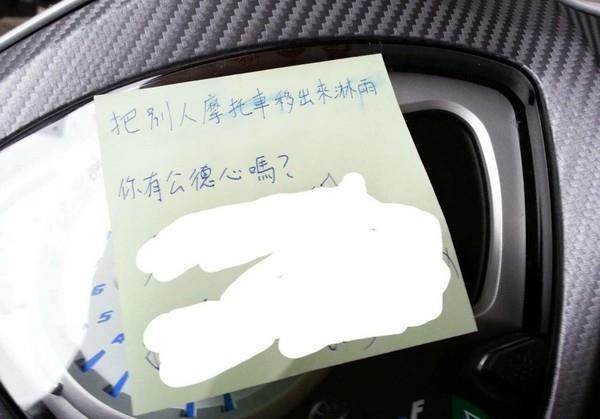 把別人摩托車移出來淋雨
你有公德心嗎?
6
5
4
F